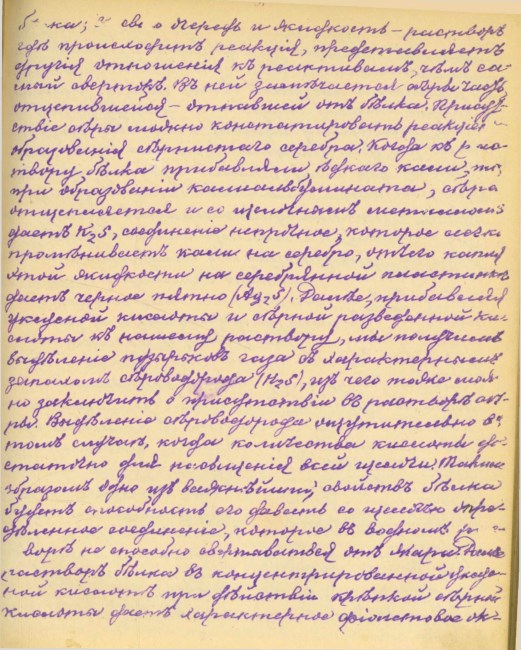 ка; свою очередь и жидкость – растворъ
гдѣ происходитъ реакція, представляетъ
другія отношенія къ реактивамъ, чѣмъ са-
мый свертокъ. Въ ней замѣчается сѣра часть
отщепившейся – отпавшей отъ бѣлка. Присут-
ствіе сѣры можно констатировать реакціей
образованія сѣрнистаго серебра. Когда къ рас-
твору бѣлка прибавляли ѣдкаго кали, то,
при образованіи калиальбумината, сѣра
отщепляется и со щелочнымъ металломъ
даетъ K₂S, соединеніе непрочное, которое легко
промѣниваетъ кали на серебро, отчего капля
этой жидкости на серебрянной пластинкѣ
даетъ черное пятно (Ag₂S). Далѣе, прибавляя
уксусной кислоты и сѣрной разведенной ки-
слоты къ нашему раствору, мы получимъ
выдѣленіе пузырьковъ газа съ характернымъ
запахомъ сѣроводорода (H₂S), изъ чего тоже мож-
но заключить о присутствіи въ растворѣ сѣ-
ры. Выдѣленіе сѣроводорода ощутительно въ
томъ случаѣ, когда количества кислоты до-
статочно для насыщенія всей щелочи. Такимъ
образомъ одно изъ важнѣйшихъ свойствъ бѣлка
будетъ способность его давать со щелочью опре-
дѣленное соединеніе, которое въ водномъ рас-
творѣ не способно свертываться отъ жара. Далѣе
растворъ бѣлка въ концентрированной уксус-
ной кислотѣ при дѣйствіи крѣпкой сѣрной
кислоты даетъ характерное фіолетовое ок-